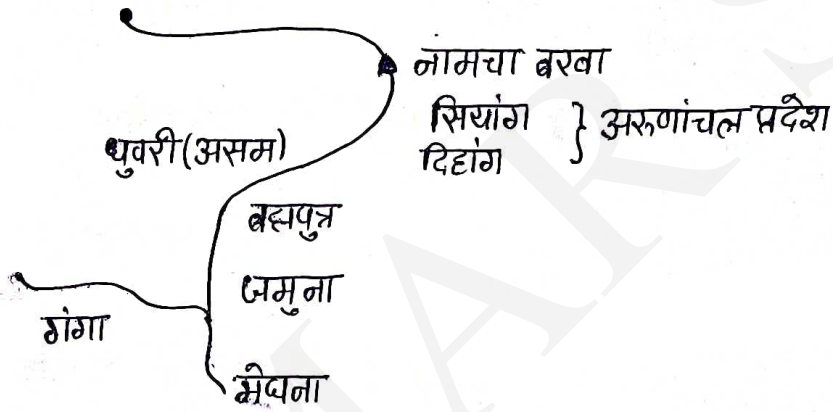 नामचा बरवा
सियांग } अरुणांचल प्रदेश
दिहांग
धुवरी (असम)
ब्रह्मपुत्र
जमुना
गंगा
मेघना